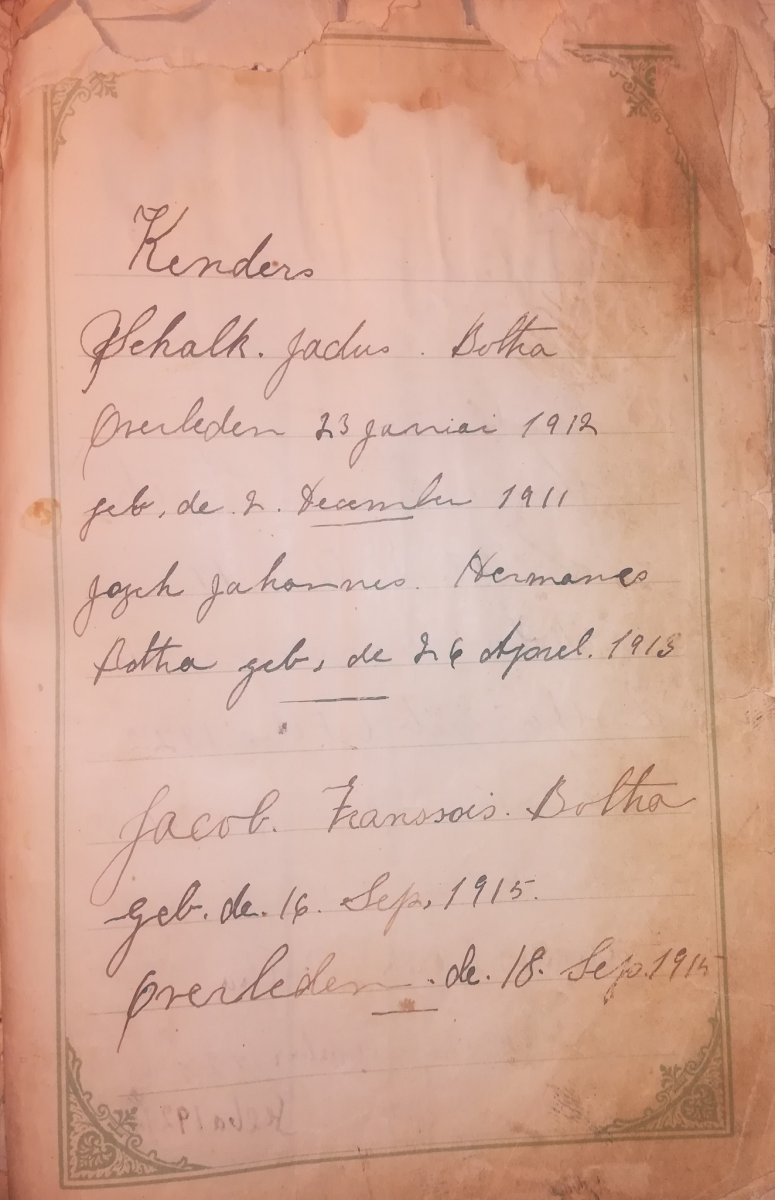 Kenders
Schalk. Jadus. Botha
Overleden 23 Januari 1912
geb, de 2. December 1911
Joseh Johannes. Hermanes
Botha geb, de 26 Aprel. 1913
Jacob. Franssois. Botha
geb. de. 16. Sep, 1915.
Overleden. de. 18. Sep. 1915